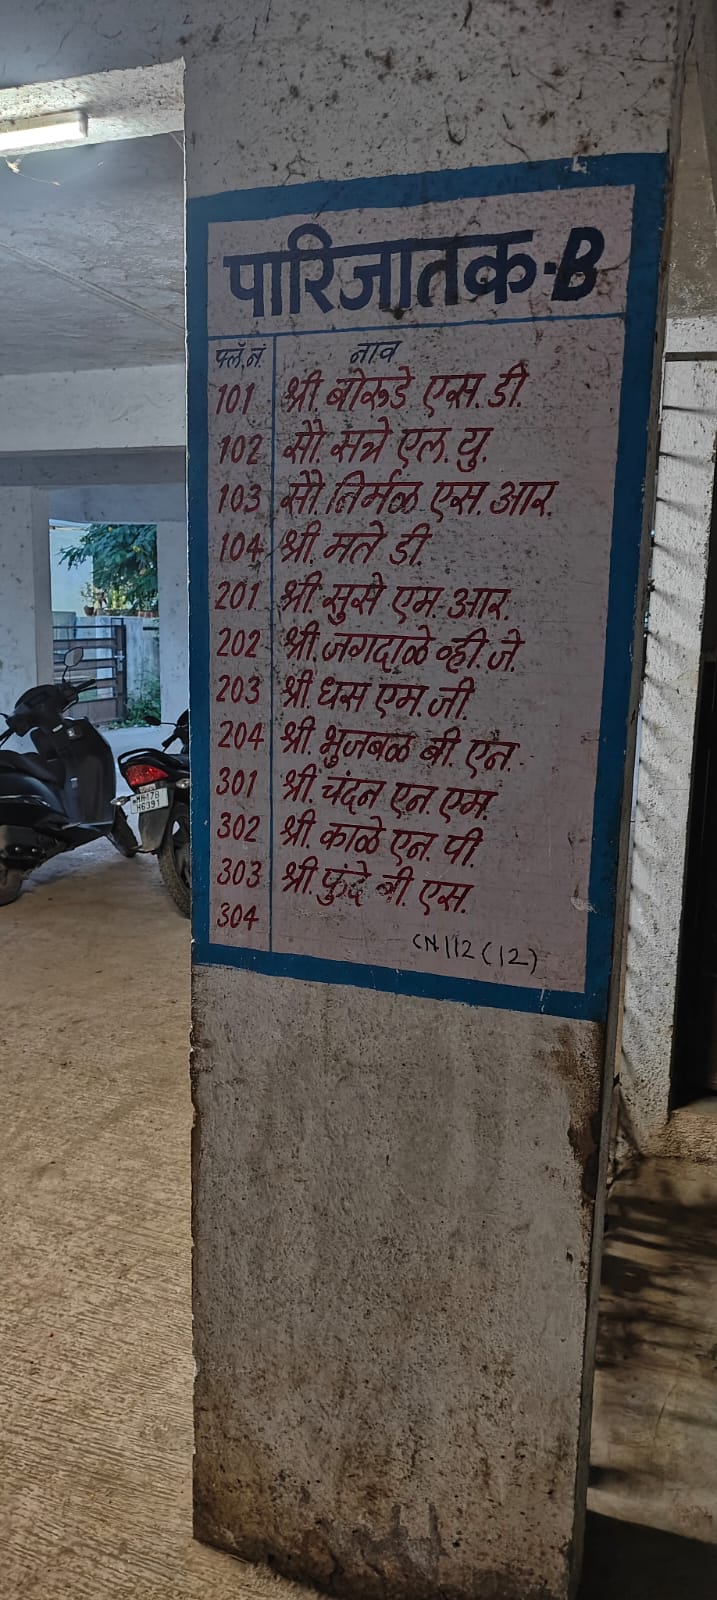 पारिजातक-B
फ्लॅ.नं. नाव
101 श्री. बोरुडे एस. डी.
102 सौ. सत्रे एल. यु.
103 सौ. निर्मळ एस. आर.
104 श्री. मते डी.
201 श्री. सुसे एम. आर.
202 श्री. जगदाळे व्ही. जे.
203 श्री. धस एम. जी.
204 श्री. भुजबळ बी. एन.
301 श्री. चंदन एन. एम.
302 श्री. काळे एन. पी.
303 श्री. फुंदे बी. एस.
304
CN 112 (12)
MH17B
H6391